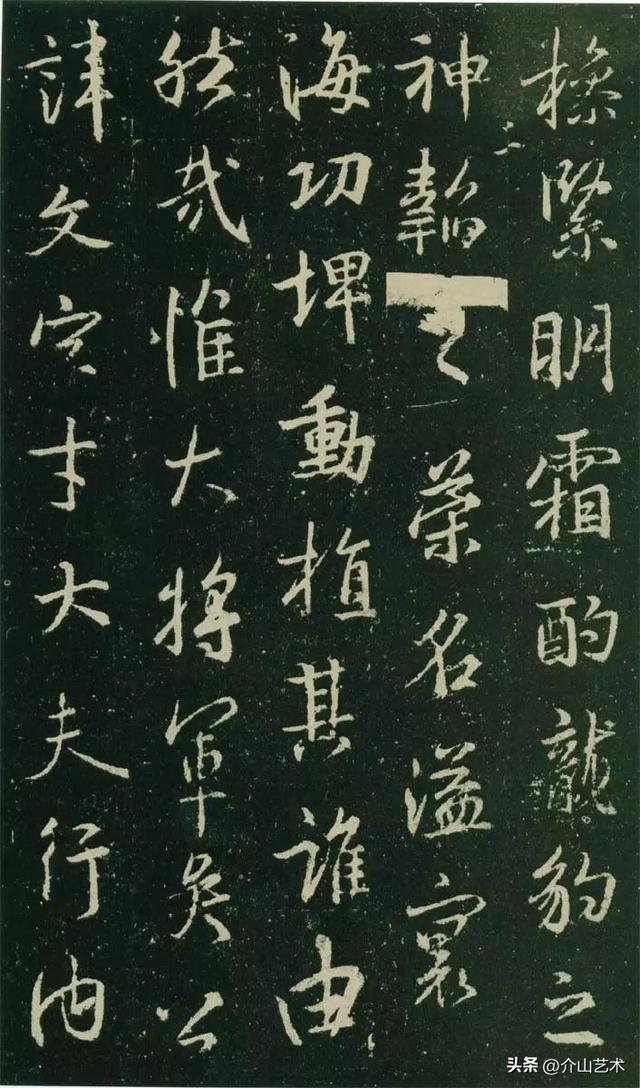 操緊明霜酌龍豹之
神韜之榮名溢寰
海功埤動植其誰由
然哉惟大將軍矣公
諱文字才大夫行内
头条 @介山艺术